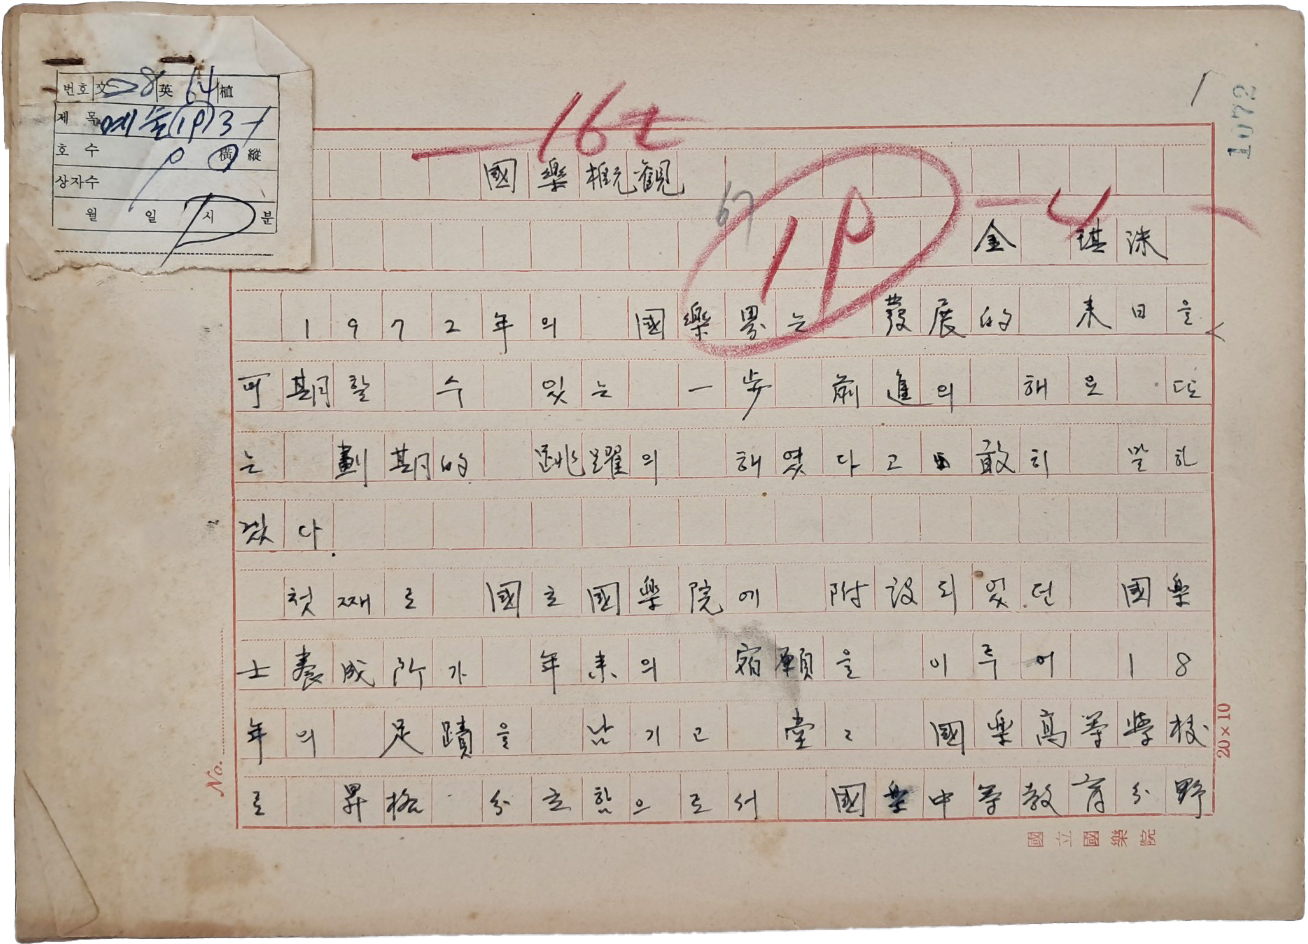 번호 文 28 英 64 植
제 목 예술(1P)3-1
호 수 P 横 縱
상자수
월 일 시 분
1
1072
162
國樂概観
67
1P
4
金 琪洙
1972年의 國樂界는 發展的 来日을
可期할 수 있는 一步 前進의 해요 또
는 劃期的 跳躍의 해였다고 敢히 말하
겠다.
첫째로 國立國樂院에 附設되었던 國樂
士養成所가 年来의 宿願을 이루어 18
年의 足蹟을 남기고 堂々 國楽高等学校
로 昇格·分立함으로서 國楽中等教育分野
No.
20×10
國立國樂院